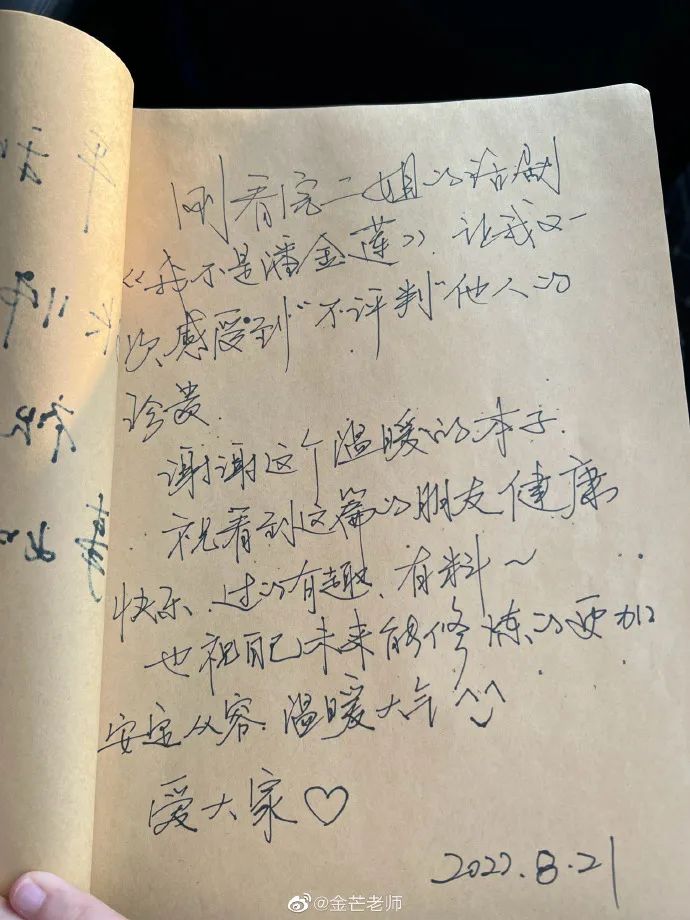 刚看完二姐的话剧
《我不是潘金莲》，让我又一
次感受到"不评判"他人的
珍贵.
谢谢这个温暖的本子.
祝看到这篇的朋友健康
快乐、过的有趣、有料～
也祝自己未来能修炼的更加
安定从容.温暖大气^_^
爱大家♡
2022.8.21
@金芒老师